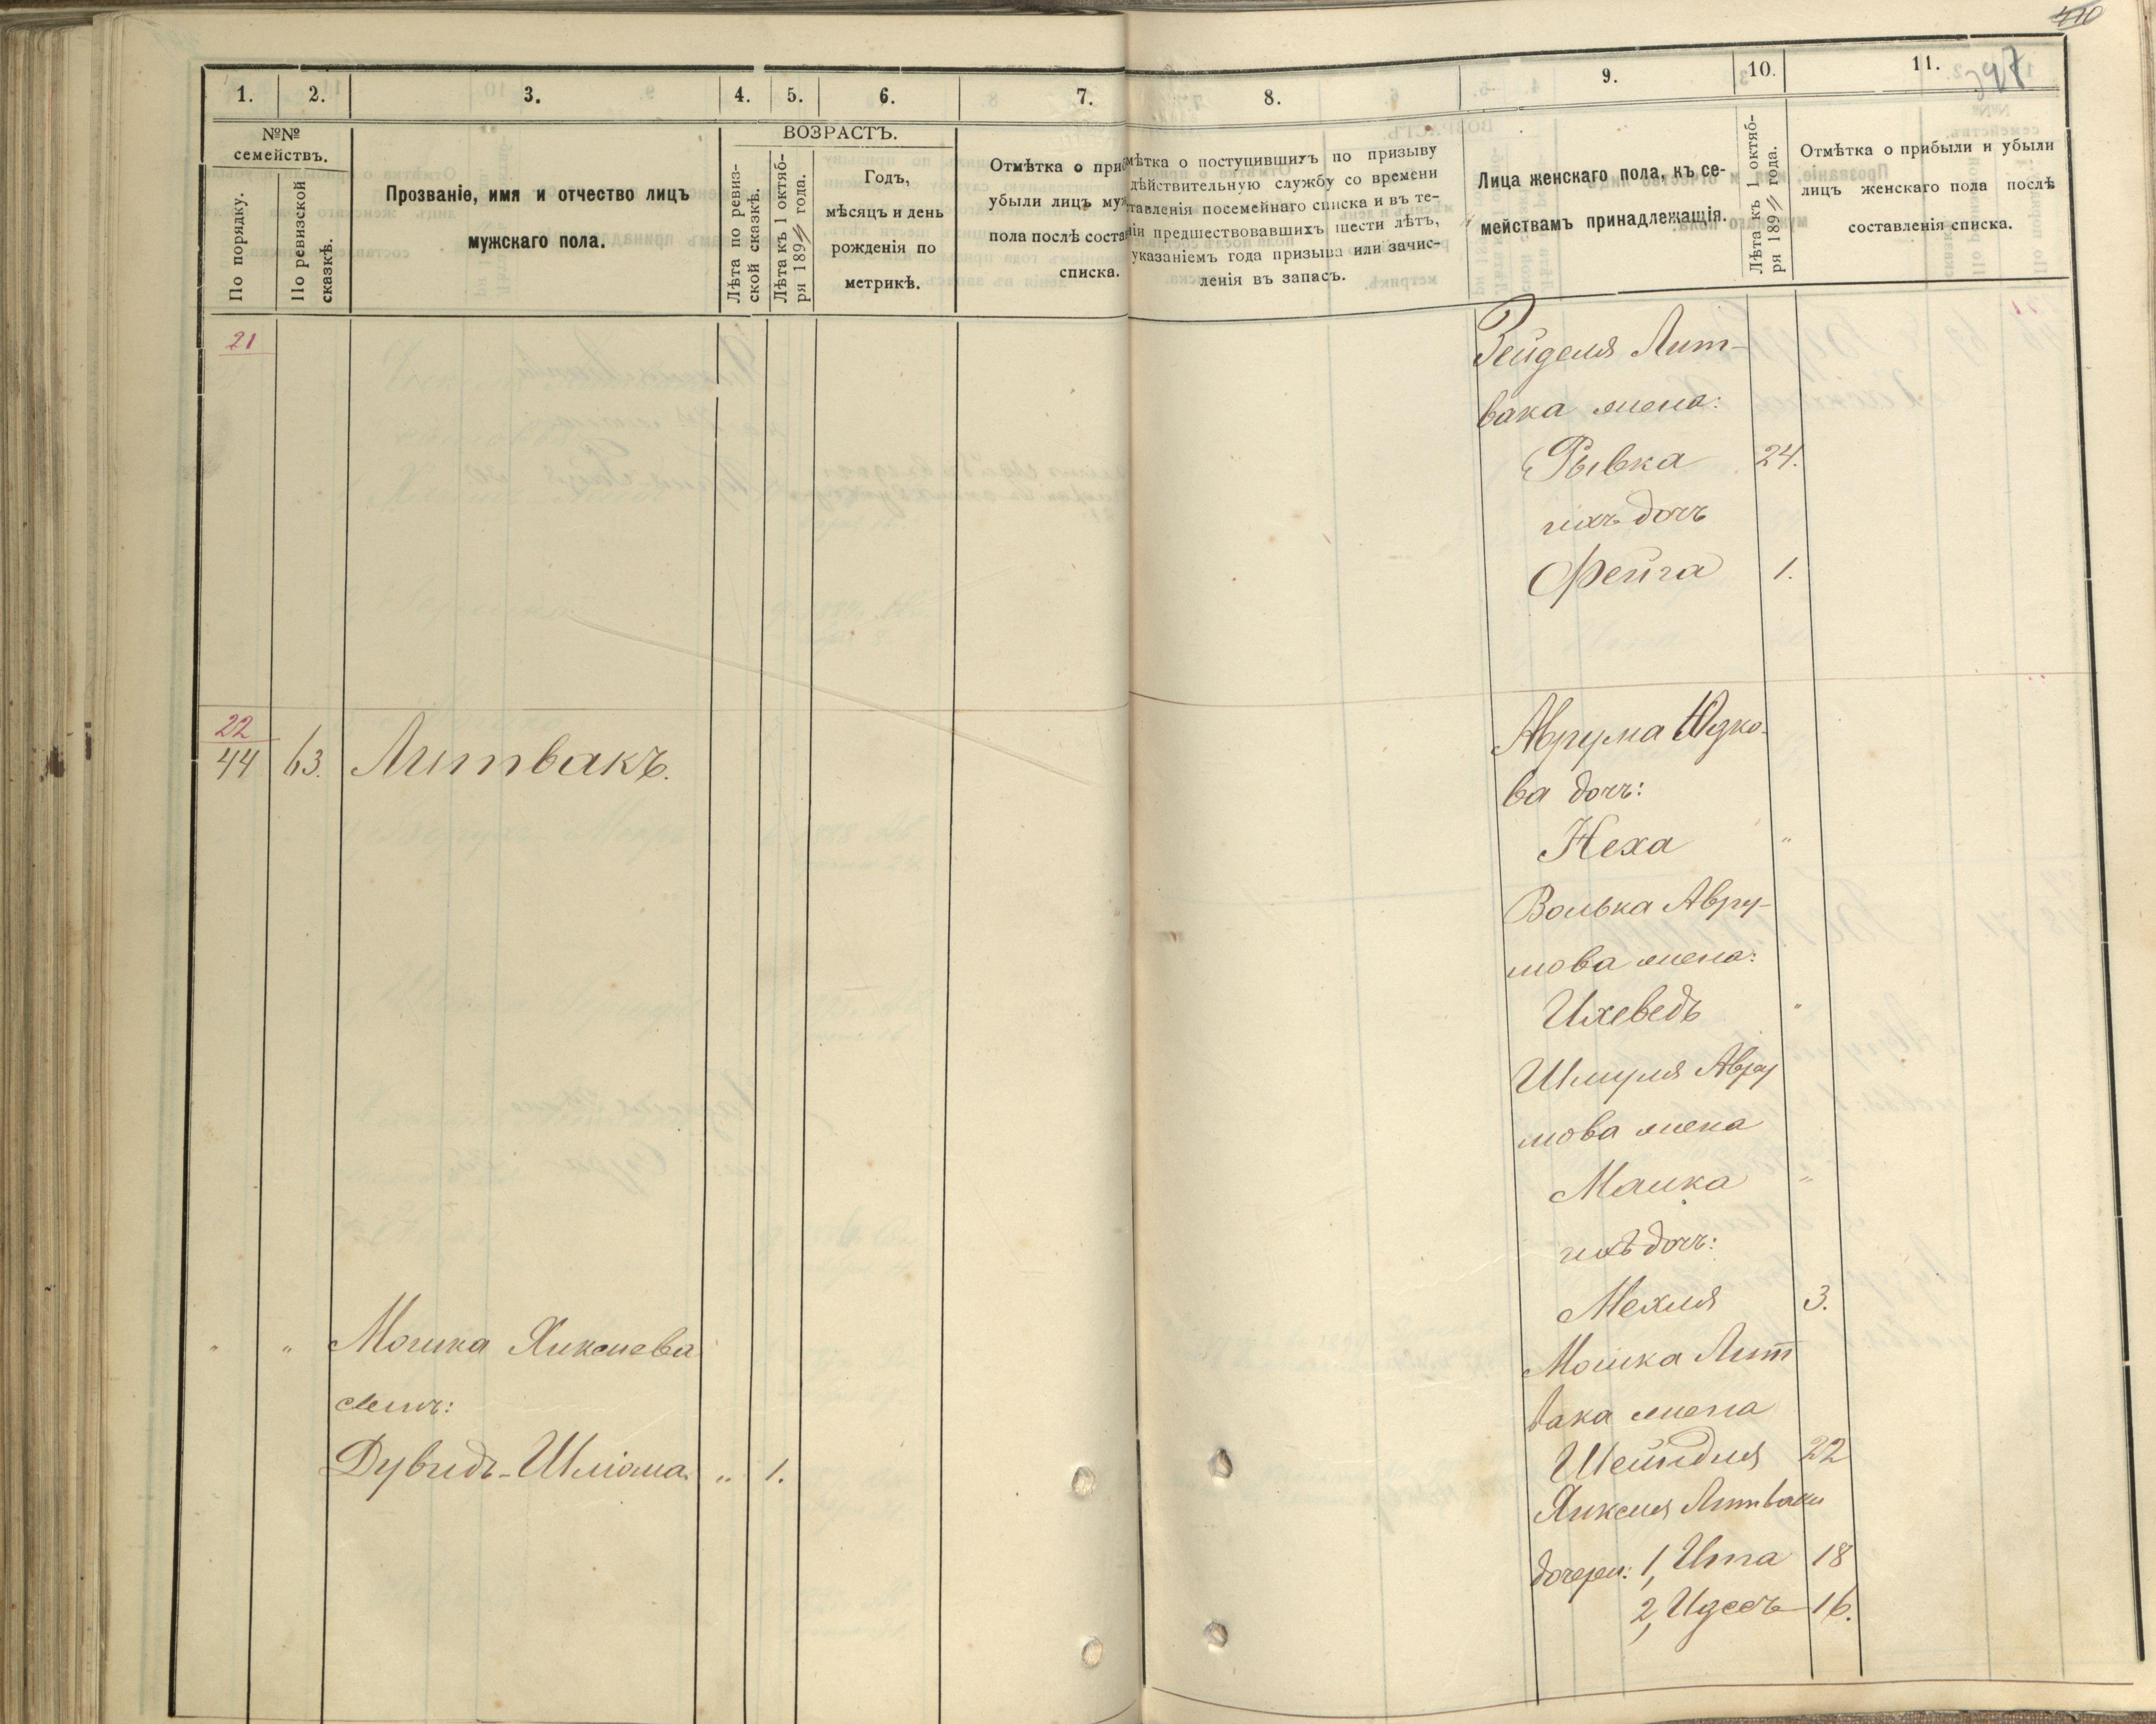 410
347
1.
2.
3.
4.
5.
6.
7.
8.
9.
10.
11.
№№
семействъ.
По порядку.
По ревизской
сказкѣ.
Прозваніе, имя и отчество лицъ
мужскаго пола.
ВОЗРАСТЪ.
Лѣта по ревиз-
ской сказкѣ.
Лѣта къ 1 октяб-
ря 189 года.
Годъ,
мѣсяцъ и день
рожденія по
метрикѣ.
Отмѣтка о при
убыли лицъ му
пола послѣ соста
списка.
мѣтка о поступившихъ по призыву
дѣйствительную службу со времени
тавленія посемейнаго списка и въ те-
ніи предшествовавшихъ шести лѣтъ,
указаніемъ года призыва или зачис-
ленія въ запасъ.
Лица женскаго пола, къ се-
мействамъ принадлежащія.
Лѣта къ 1 октяб-
ря 189 года.
Отмѣтка о прибыли и убыли
лицъ женскаго пола послѣ
составленія списка.
21
22
44 63. Литвакъ.
" " Мошка Хикелева
сынъ:
Дувидъ-Шліома " 1.
Зейделя Лит-
вака жена:
Рывка 24.
ихъ дочь
Фейга 1.
Аврума Юдко-
ва дочь:
Неха "
Волька Авру-
мова жена:
Ихеведъ "
Шмуля Авру
мова жена
Малка "
ихъ дочь:
Мехля 3.
Мошка Лит
вака жена
Шейндля 22
Литвака
дочери: 1, Ита 18
2, Идесъ 16.